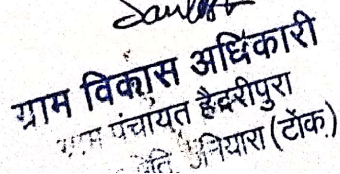 ग्राम विकास अधिकारी
ग्राम पंचायत हैदरीपुरा
उनियारा (टोंक)